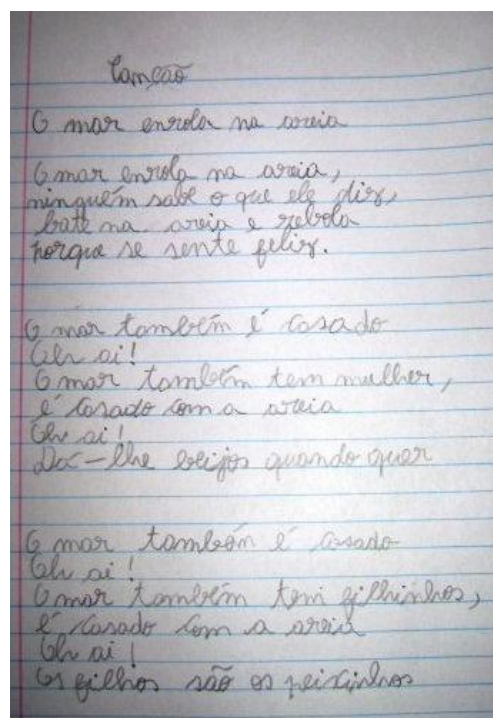 Canção
O mar enrola na areia
O mar enrola na areia,
ninguém sabe o que ele diz,
bate na areia e rebola
porque se sente feliz.
O mar também é casado
Oh ai!
O mar também tem mulher,
é casado com a areia
Oh ai!
Dá-lhe beijos quando quer
O mar também é casado
Oh ai!
O mar também tem filhinhos,
é casado com a areia
Oh ai!
Os filhos são os peixinhos